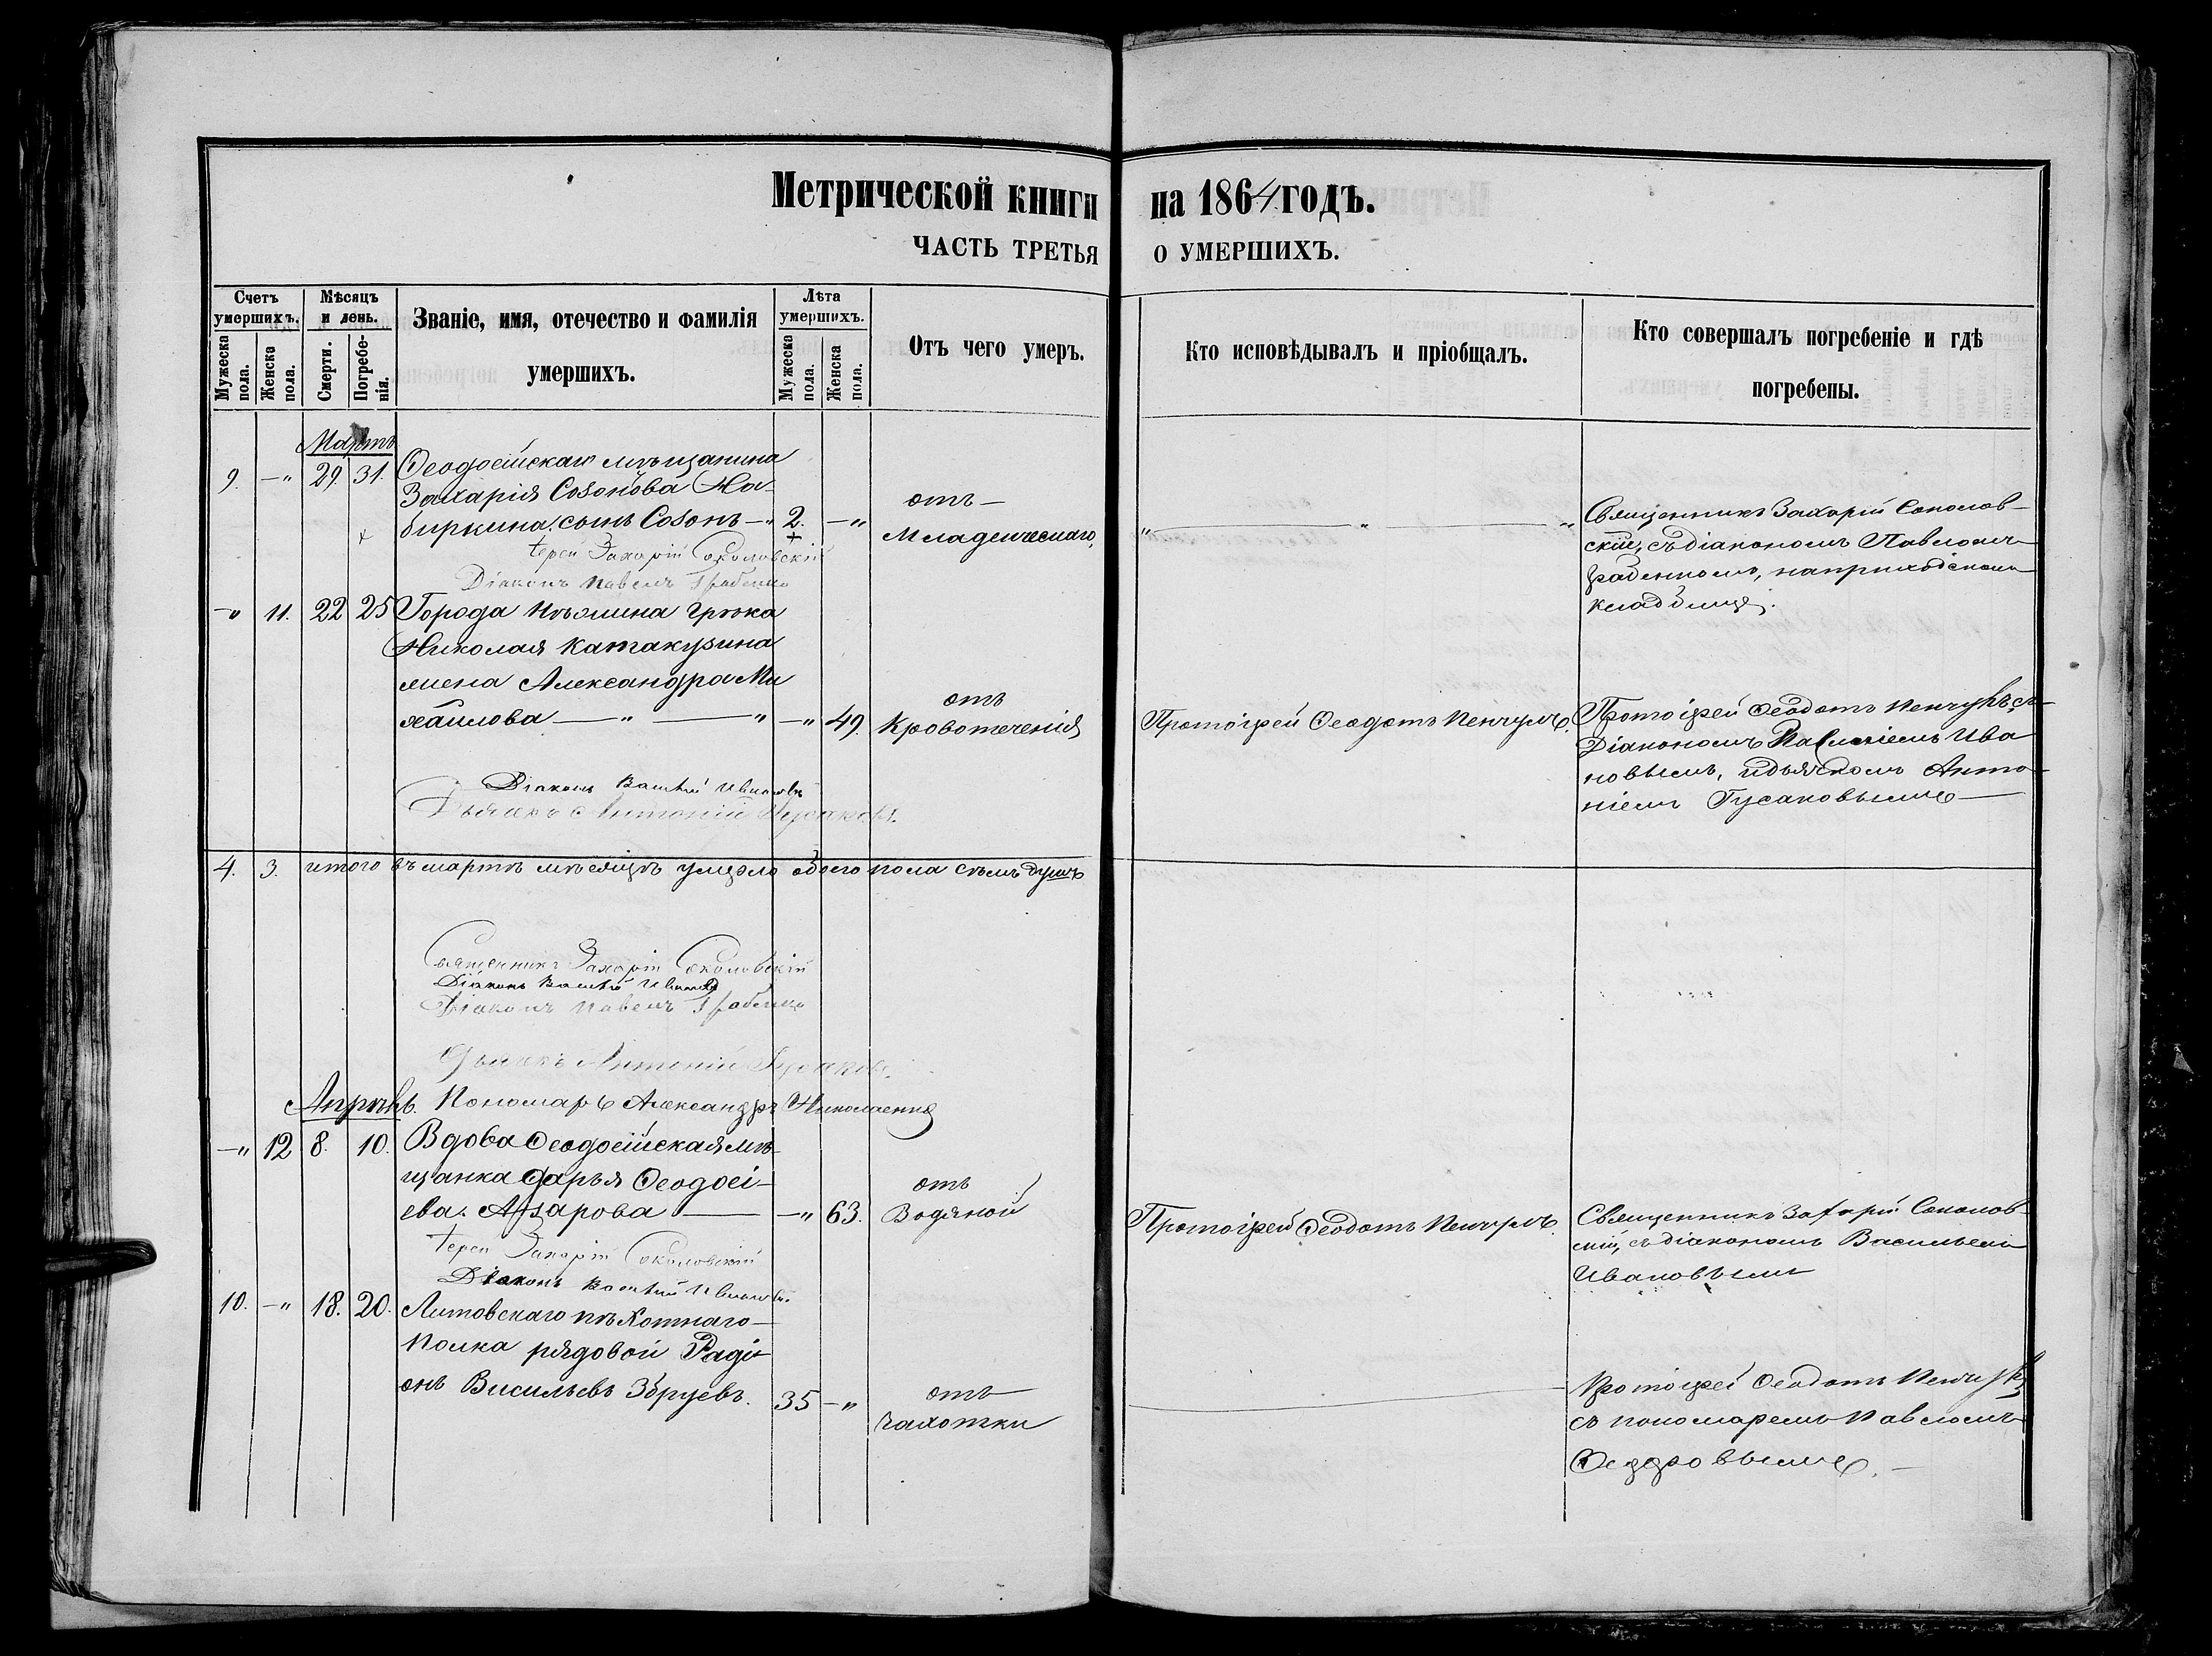 Метрической книги на 1864 годъ.
ЧАСТЬ ТРЕТЬЯ О УМЕРШИХЪ.
Счетъ умершихъ.
Мужеска пола.
Женска пола.
Мѣсяцъ и день.
Смерти.
Погребенія.
Званіе, имя, отечество и фамилія
умершихъ.
Лѣта умершихъ.
Мужеска пола.
Женска пола.
Отъ чего умеръ.
Кто исповѣдывалъ и пріобщалъ.
Кто совершалъ погребеніе и гдѣ
погребены.
Мартъ
9. —„ 29. 31. Ѳеодосійскаго мѣщанина
Захарія Созонова На-
биркина, сынъ Созонъ —„ 2. —„
отъ
Младенческаго,
Священникъ Захарій Соколов-
скій, съ діакономъ Павломъ
Грабенкомъ, на приходскомъ
кладбищѣ.
Іерей Захарій Соколовскій
Діаконъ Павелъ Грабенко
—„ 11. 22 25 Города Нѣжина грека
Николая Катакузина
жена Александра Ми
хайлова —„ —„ —„ 49.
отъ
Кровотеченія
Протоіерей Ѳеодотъ
Протоіерей Ѳеодотъ съ
Діакономъ Ива
новымъ, и дьячкомъ Анто-
ніемъ Гусаковымъ
Діаконъ Василій Ивановъ
Дьячекъ Антоній Гусаковъ.
4. 3. итого въ мартѣ мѣсяцѣ умерло обоего пола семь душъ
Священникъ Захарій Соколовскій
Діаконъ Василій Ивановъ
Діаконъ Павелъ Грабенко
Дьячекъ Антоній Гусаковъ.
Пономарь Александръ Николаенко
Апрѣль.
—„ 12 8. 10. Вдова Ѳеодосійская мѣ-
щанка Дарья Ѳеодосі-
ева. Азарова —„ 63.
отъ
Водяной
Протоіерей Ѳеодотъ
Священникъ Захарій Соколов-
скій, съ діакономъ Василіемъ
Ивановымъ
Іерей Захарій Соколовскій
Діаконъ Василій Ивановъ.
10. —„ 18. 20. Литовскаго пѣхотнаго
полка рядовой Радіо
онъ Васильевъ Збруевъ. 35 —„
отъ
чахотки
Протоіерей Ѳеодотъ
съ пономаремъ Павломъ
Ѳедоровымъ.